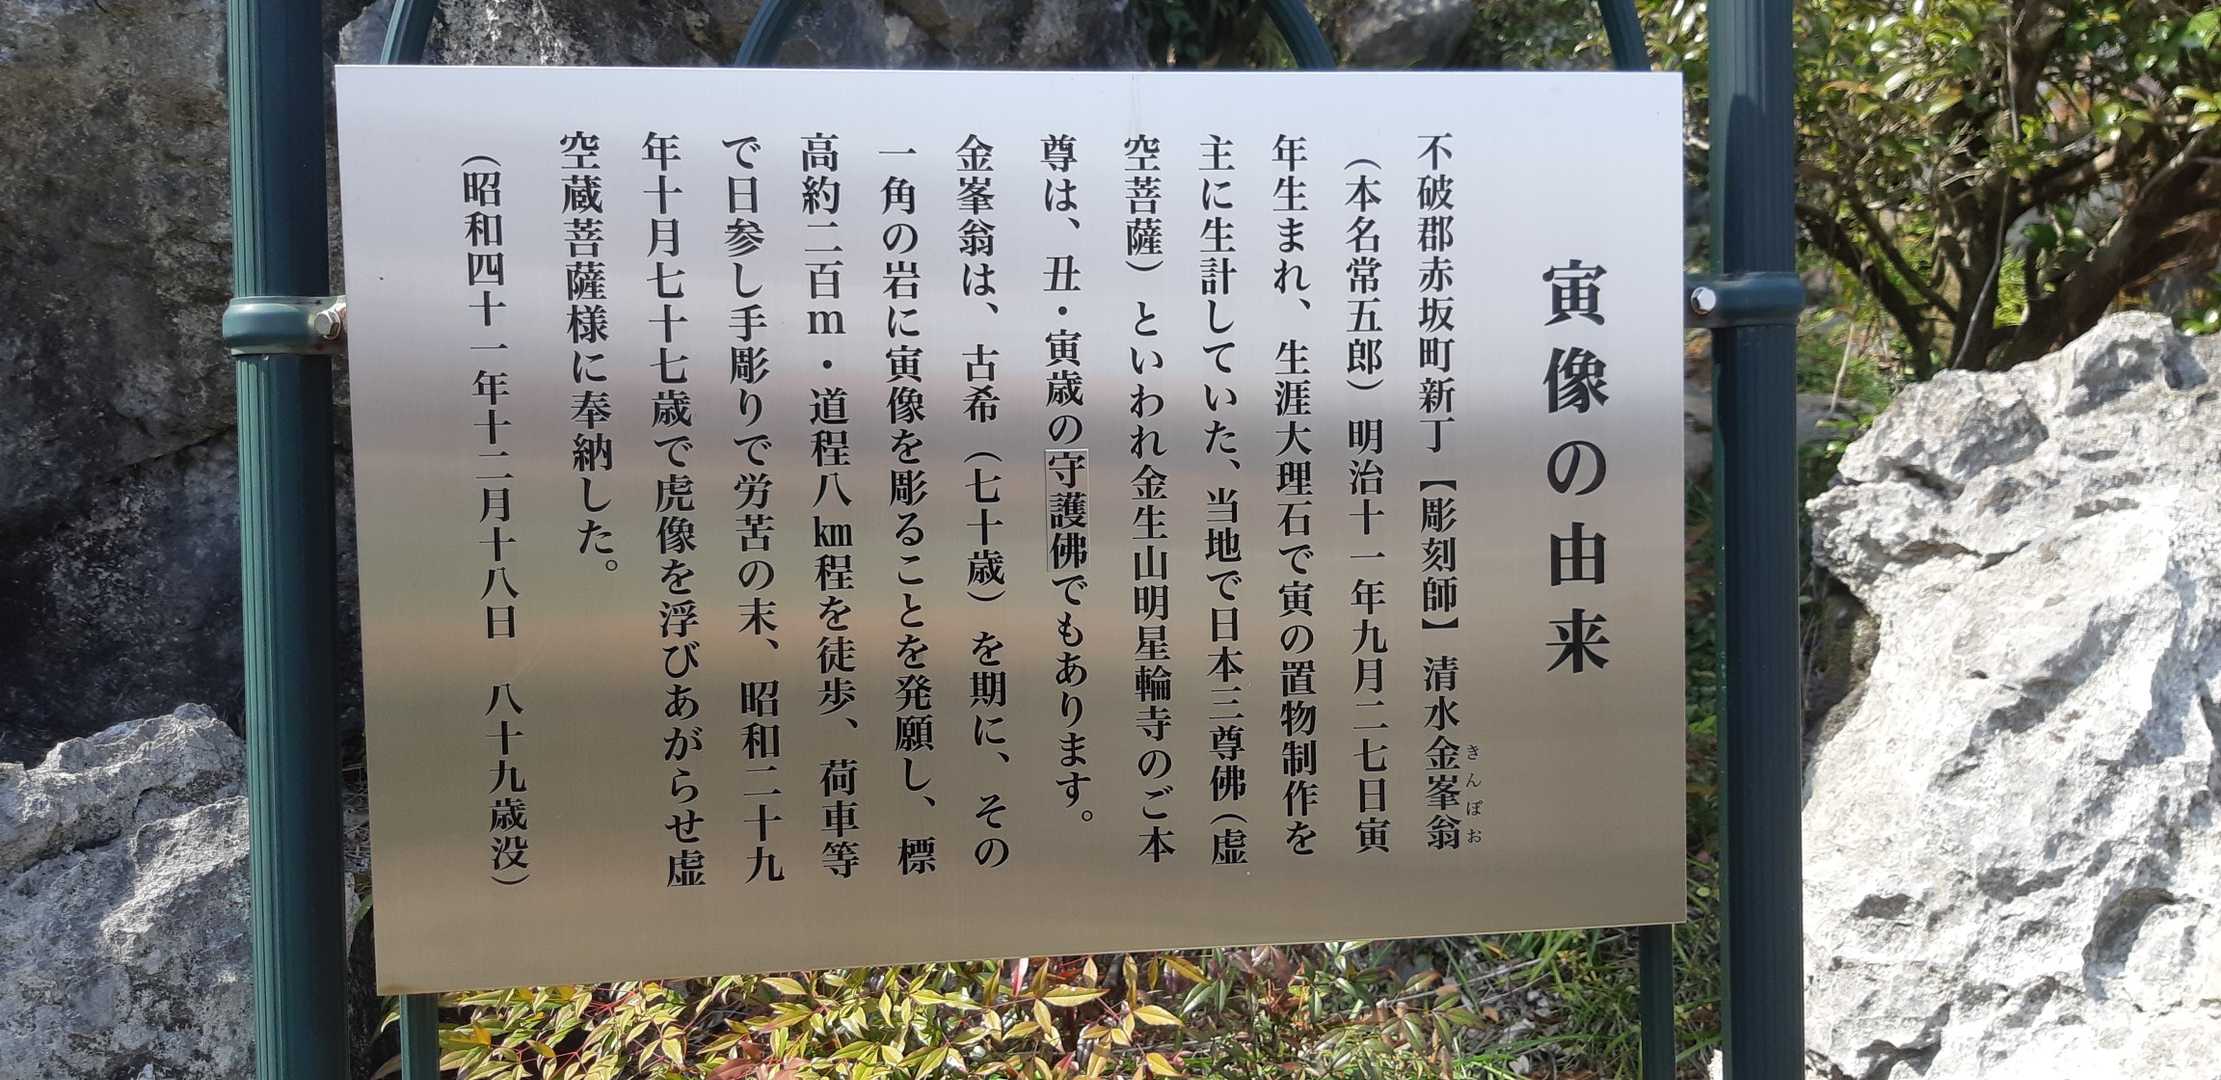 寅像の由来
不破郡赤坂町新丁【彫刻師】清水金峯翁
きんぽお
（本名常五郎）明治十一年九月二七日寅
年生まれ、生涯大理石で寅の置物制作を
主に生計していた、当地で日本三尊佛（虚
空菩薩）といわれ金生山明星輪寺のご本
尊は、丑・寅歳の守護佛でもあります。
金峯翁は、古希（七十歳）を期に、その
一角の岩に寅像を彫ることを発願し、標
高約二百ｍ・道程八㎞程を徒歩、荷車等
で日参し手彫りで労苦の末、昭和二十九
年十月七十七歳で虎像を浮びあがらせ虚
空蔵菩薩様に奉納した。
（昭和四十一年十二月十八日　八十九歳没）